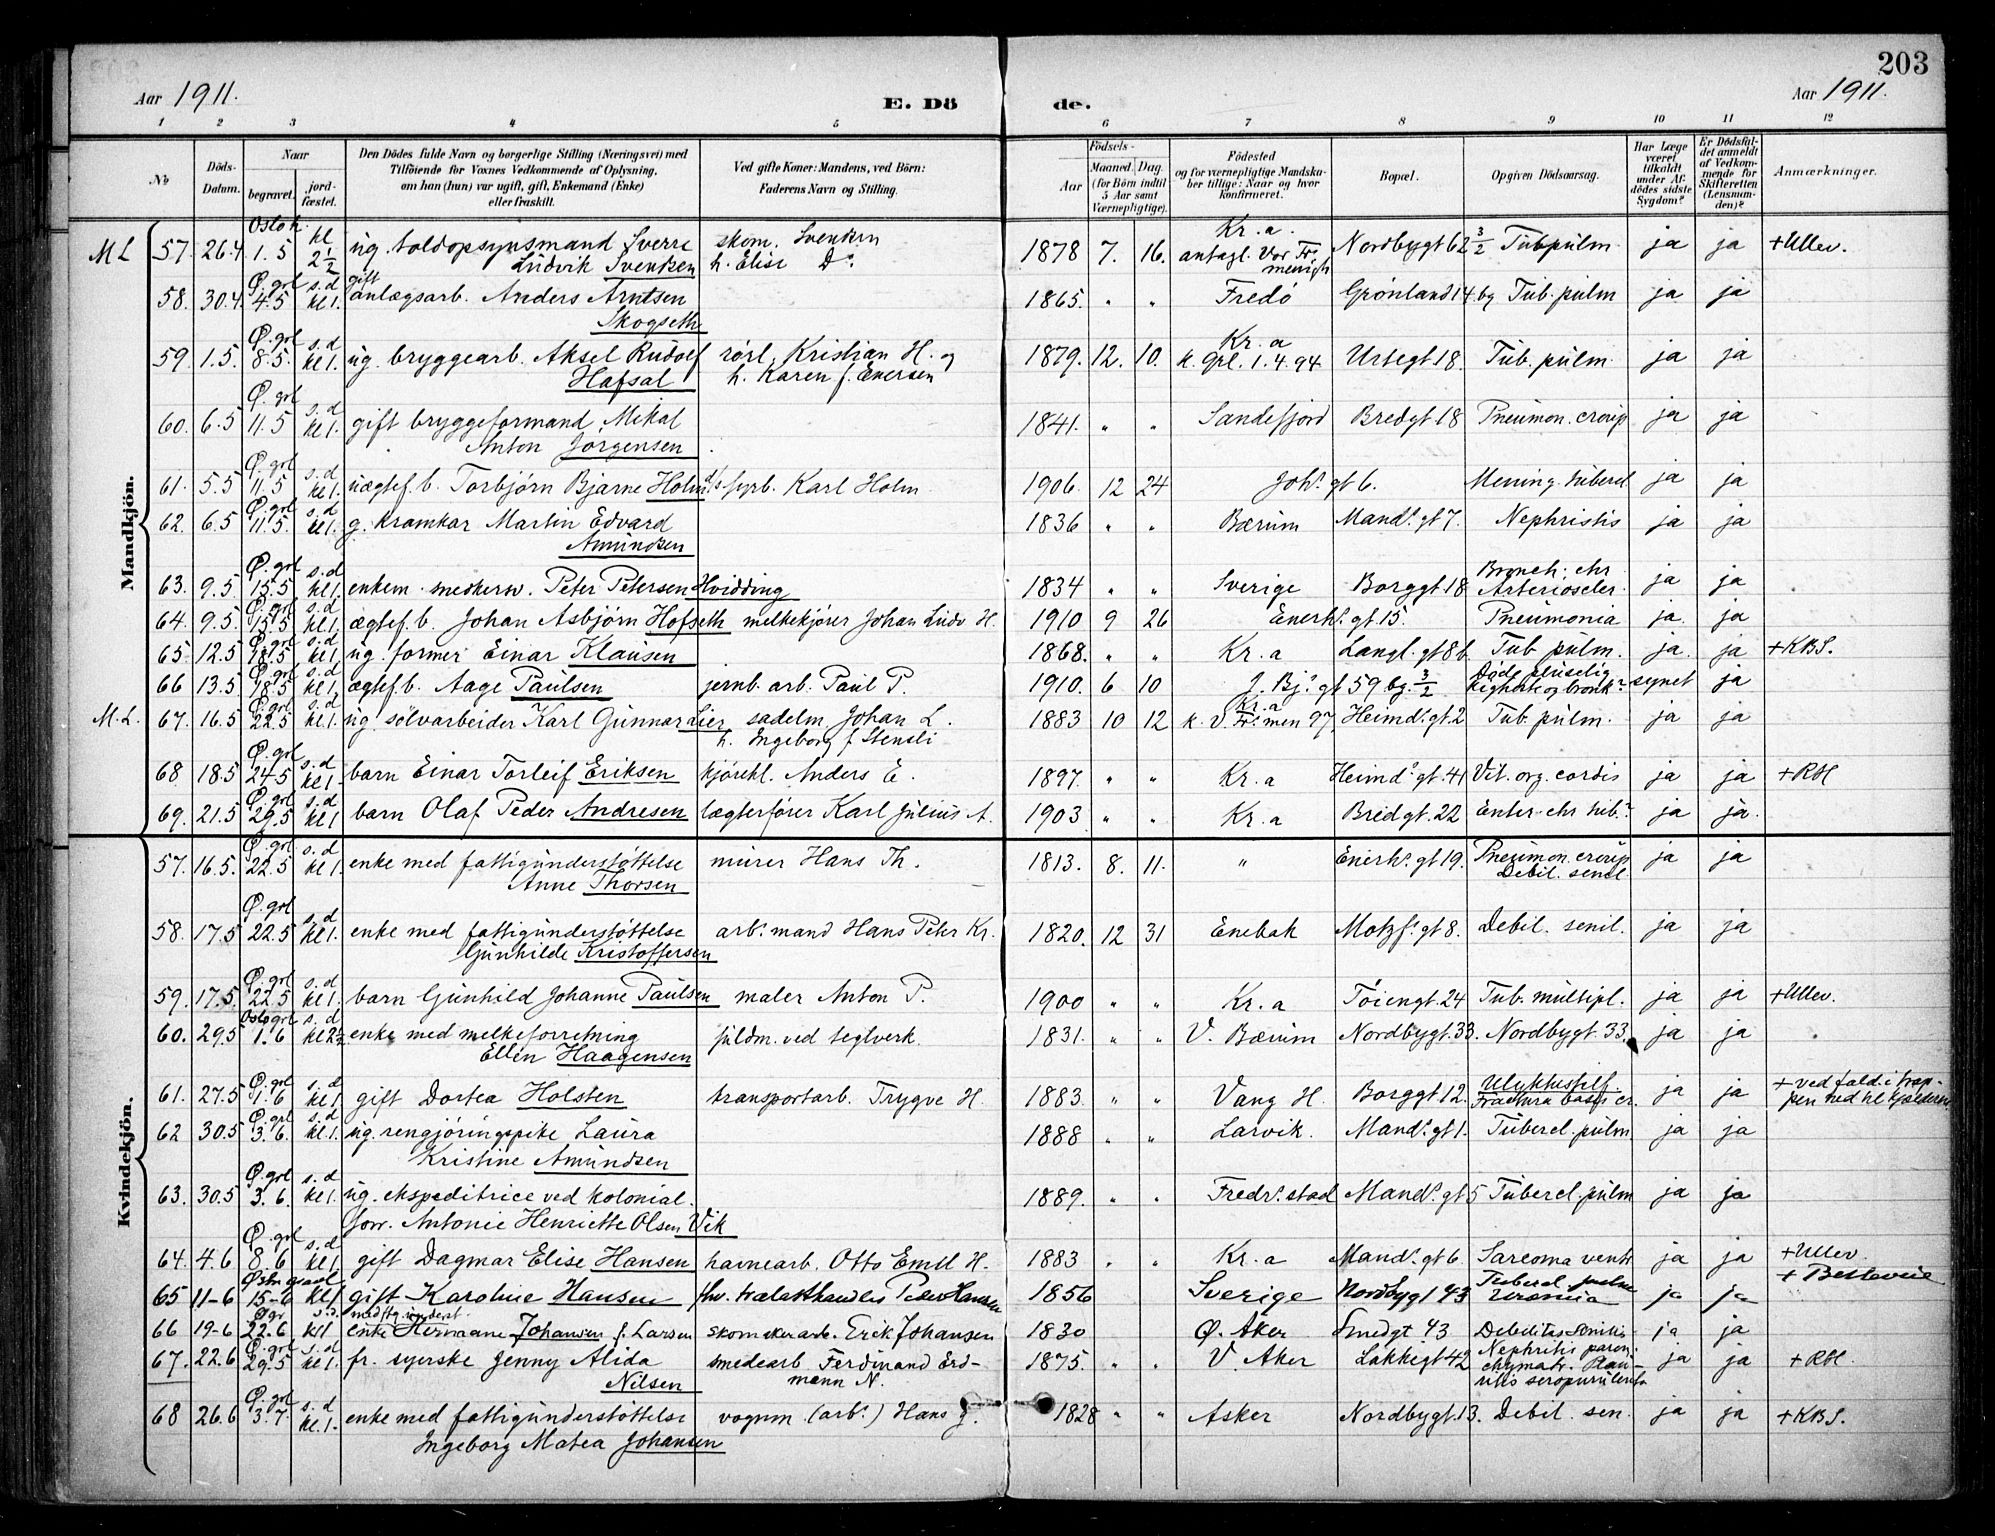 203
Aar 1911.
E. Dö de.
Aar 1911.
1 2 3 4 5 6 7 8 9 10 11 12
No
Döds-Datum.
Naar
begravet.
jord-fæstet.
Den Dödes fulde Navn og borgerlige Stilling (Næringsvei) med
Tilföiende for Voxnes Vedkommende af Oplysning,
om han (hun) var ugift, gift, Enkemand (Enke)
eller fraskilt.
Ved gifte Koner: Mandens, ved Börn:
Faderens Navn og Stilling.
Födsels-
Aar
Maaned. Dag.
(for Börn indtil
5 Aar samt
Værnepligtige).
Födested
og for værnepligtige Mandska-
ber tillige: Naar og hvor
konfirmeret.
Bopæl.
Opgiven Dödsaarsag.
Har Læge
været
tilkaldt
under Af-
dödes sidste
Sygdom?
Er Dödsfal-
det anmeldt
af Vedkom-
mende for
Skifteretten
(Lensman-
den)?
Anmærkninger.
Mandkjön.
M L 57. 26.4 Oslo k. 1.5 kl 2½ ug. toldopsynsmand Sverre skom. Svenksen 1878 7. 16. Kr.a. antagl. Vor Fr. menigh Nordbygt 62 3/2 Tub pulm ja ja + Ullev.
Ludvik Svendsen h. Elise Do.
58. 30.4 Ø. grl 4.5 s.d kl 1. gift anlægsarb. Anders Arntsen 1865. " " Fredö Grönland 14 bg Tub. pulm ja ja
Skogseth
59. 1.5 Ø. grl 8.5 s.d kl 1. ug. bryggearb. Aksel Rudolf rörl. Kristian H. og 1879. 12. 10. Kr.a k. Grl. 1.4.94 Urtegt 18. Tub. pulm. ja ja
Hafsal h. Karen f. Enersen
60. 6.5 Ø. grl 11.5 s.d kl 1. gift bryggeformand Mikal 1841. " " Sandefjord Bredgt 18 Pneumon. croup ja ja
Anton Jörgensen
61. 5.5 Ø. grl 11.5 s.d kl 1. uægtef. b. Torbjörn Bjarne Holm Karl Holm 1906. 12 24 Johs. gt 6. Mening. tubercl ja ja
62. 6.5 Ø. grl 11.5. s.d kl 1. g. kramkar Martin Edvard 1836 " " Bærum Mands. gt 7. Nephritis ja ja
Amundsen
63. 9.5 Ø. grl 15.5 s.d kl 1. enkem. snedkersv. Peter Petersen Hvidding 1834 " " Sverige Borggt 18 Bronch. chr Arterioscler. ja ja
64. 9.5 Ø. grl 15.5 s.d kl 1. ægtef. b. Johan Asbjörn Hofseth melkekjörer Johan Ludv H. 1910 9 26 Enerhs. gt 15. Pneumonia ja. ja
65 12.5 Ø. grl 18.5 s.d kl 1 ug. former Einar Klausen 1868. " " Kr.a Langl. gt 8 b Tub pulm. ja. ja + KBS.
66 13.5 Ø. grl 18.5 s.d kl 1. ægtef. b. Aage Paulsen jernb. arb. Paul P. 1910. 6 10 J. Bjs. gt 59 bg. 3/2 Döde pluselig kighoste og bronk. synet ja
M.L. 67. 16.5 Ø. grl 22.5 s.d kl 1 ug. sölvarbeider Karl Gunnar Lier sadelm. Johan L. 1883 10 12 Kr.a k. V. Frs. men 97. Heimds. gt. 2 Tub. pulm. ja ja
h. Ingeborg f. Stensli
68 18.5 Ø. grl 24.5 s.d kl 1. barn Einar Torleif Eriksen kjörekl. Anders E. 1897. " " Kr.a Heimds. gt. 41 Vit. org. cordis ja ja + RH
69. 21.5 Ø. grl 29.5 s.d kl 1 barn Olaf Peder Andresen lægterförer Karl Julius A. 1903 " " Kr.a Bredgt. 22 Enter. chr tub. ja ja.
Kvindekjön.
57. 16.5. Ø. grl 22.5 s.d kl 1. enke med fattigunderstöttelse murer Hans Th. 1813. 8. 11. " Enerhs. gt 19. Pneumon. croup ja ja
Anne Thorsen Debil. senil.
58. 17.5 Ø. grl 22.5 s.d kl 1. enke med fattigunderstöttelse arbs. mand Hans Peter Kr. 1820. 12 31 Enebak Motzfs. gt 8. Debil. senil. ja ja
Gunhilde Kristoffersen
59. 17.5. Ø. grl 22.5 s.d kl 1. barn Gunhild Johanne Paulsen maler Anton P. 1900 " " Kr.a Töiengt. 24 Tub. multipl. ja ja + Ullev.
60. 29.5 Oslo grl 1.6 s.d kl 2½ enke med melkeforretning fuldm. ved teglverk. 1831. " " V. Bærum Nordbygt. 33. Nordbygt. 33. ja ja
Ellen Haagensen
61. 27.5 Ø. grl 1.6 s.d kl 1. gift Dortea Holsten transportarb. Trygve H. 1883. " " Vang H. Borggt 12. Ulykkestilf. Fractura basis cr. ja ja + ved fald i trap-
pen ned til kjelderen.
62 30.5 Ø. grl 3.6. s.d kl 1. ug. rengjöringspike Laura 1888 " " Larvik. Mands. gt 1. Tubercl. pulm ja ja
Kristine Amundsen
63. 30.5 Ø. grl 3.6. s.d kl 1. ug. ekspeditrice ved kolonial. 1889. " " Fredrs. stad Mands. gt 5 Tubercl. pulm ja ja
forr. Antonie Henriette Olsen Vik
64. 4.6 Ø. grl 8.6 s.d kl 1. gift Dagmar Elise Hansen havnearb. Otto Emil H. 1883 " " Kr.a Mands. gt 6 Sarcoma ventr ja ja + Ullev.
65 11-6 Østre gravl 15-6 kl 1 gift Karoline Hansen fhv. trælasthandler Peder Hansen 1856 Sverige Nordbygt 43 Tubercl. pulm Uræmia ja ja
66 19-6 Ø gr 22.6 s.d. kl 1 enke Hermane Johansen f. Larsen skomakerarb. Erik Johansen 1830 Ø. Aker Smedgt 43 Debilitas Senilis ja ja
67. 22.6 Ø. grl 29.5 s.d kl 1. fr. syerske Jenny Alida smedearb Ferdinand Erd- 1875. " " V Aker Lakkegt 42 Nephritis paren- ja ja + RH.
Nilsen mann N. chymatr. Pleu-
ritis seropurulenta
68 26.6 Ø. grl 3.7. s.d kl. 1. enke med fattigunderstöttelse vognm (arbs.) Hans J. 1828 " " Asker Nordbygt. 13. Debil. sen. ja ja + KBS.
Ingeborg Matea Johansen